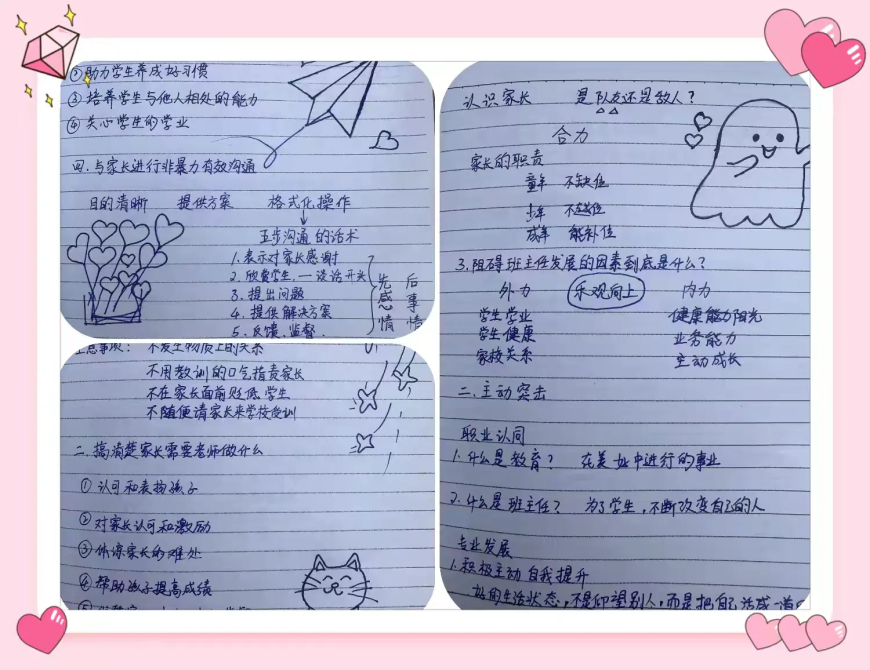 ②助力学生养成好习惯
③培养学生与他人相处的能力
④关心学生的学业
四.与家长进行非暴力有效沟通
目的清晰 提供方案 格式化操作
五步沟通的话术
1.表示对家长感谢
2.欣赏学生,一谈话开头
3.提出问题
4.提供解决方案
5.反馈、监督.
先感情
后事情
意事项: 不发生物质上的关系
不用教训的口气指责家长
不在家长面前贬低学生
不随便请家长来学校受训
二.搞清楚家长需要老师做什么
①认可和表扬孩子
②对家长认可和激励
③体谅家长的难处
④帮助孩子提高成绩
认识家长 是队友还是敌人?
合力
家长的职责
童年 不缺位
少年 不越位
成年 能补位
3.阻碍班主任发展的因素到底是什么?
外力 乐观向上 内力
学生学业 健康能力阳光
学生健康 业务能力
家校关系 主动成长
二.主动突击
职业认同
1.什么是教育? 在美好中进行的事业
2.什么是班主任? 为了学生,不断改变自己的人
专业发展
1.积极主动自我提升
好的生活状态,不是仰望别人,而是把自己活成一道